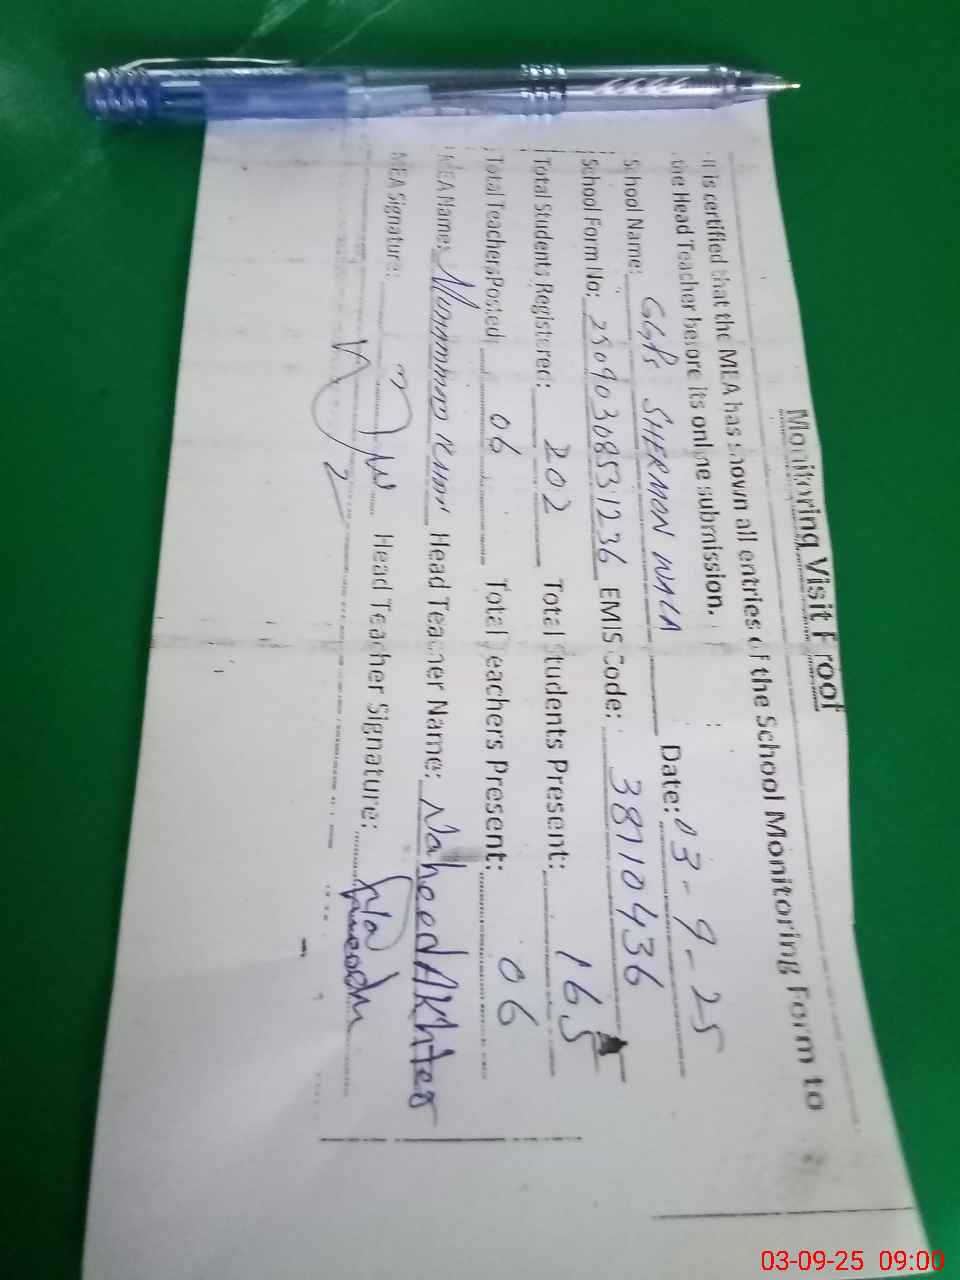 Monitoring Visit Proof
It is certified that the MEA has shown all entries of the School Monitoring Form to
the Head Teacher before its online submission.
School Name: GGPS SHERMON WALA Date: 03-9-25
School Form No: 2509030851236 EMIS Code: 38710436
Total Students Registered: 202 Total Students Present: 165
Total Teachers Posted: 06 Total Teachers Present: 06
MEA Name: Muhammad Head Teacher Name: Naheed Akhter
MEA Signature: Head Teacher Signature:
03-09-25 09:00